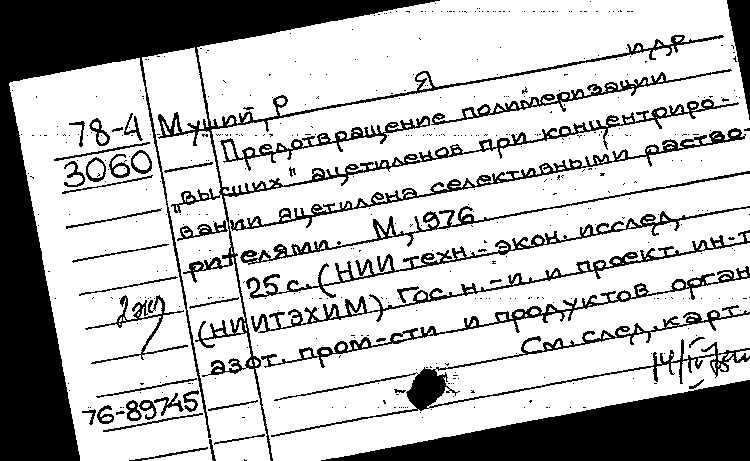 78-4
3060
Муший, Р Я и др.
Предотвращение полимеризации
„высших" ацетиленов при концентриро-
вании ацетилена селективными раство-
рителями. М., 1976.
25 с. (НИИ техн.-экон. исслед.
(НИИТЭХИМ). Гос. н.-и. и проект. ин-т
азот. пром-сти и продуктов орган
См. след. карт.
2 экз
76-89745